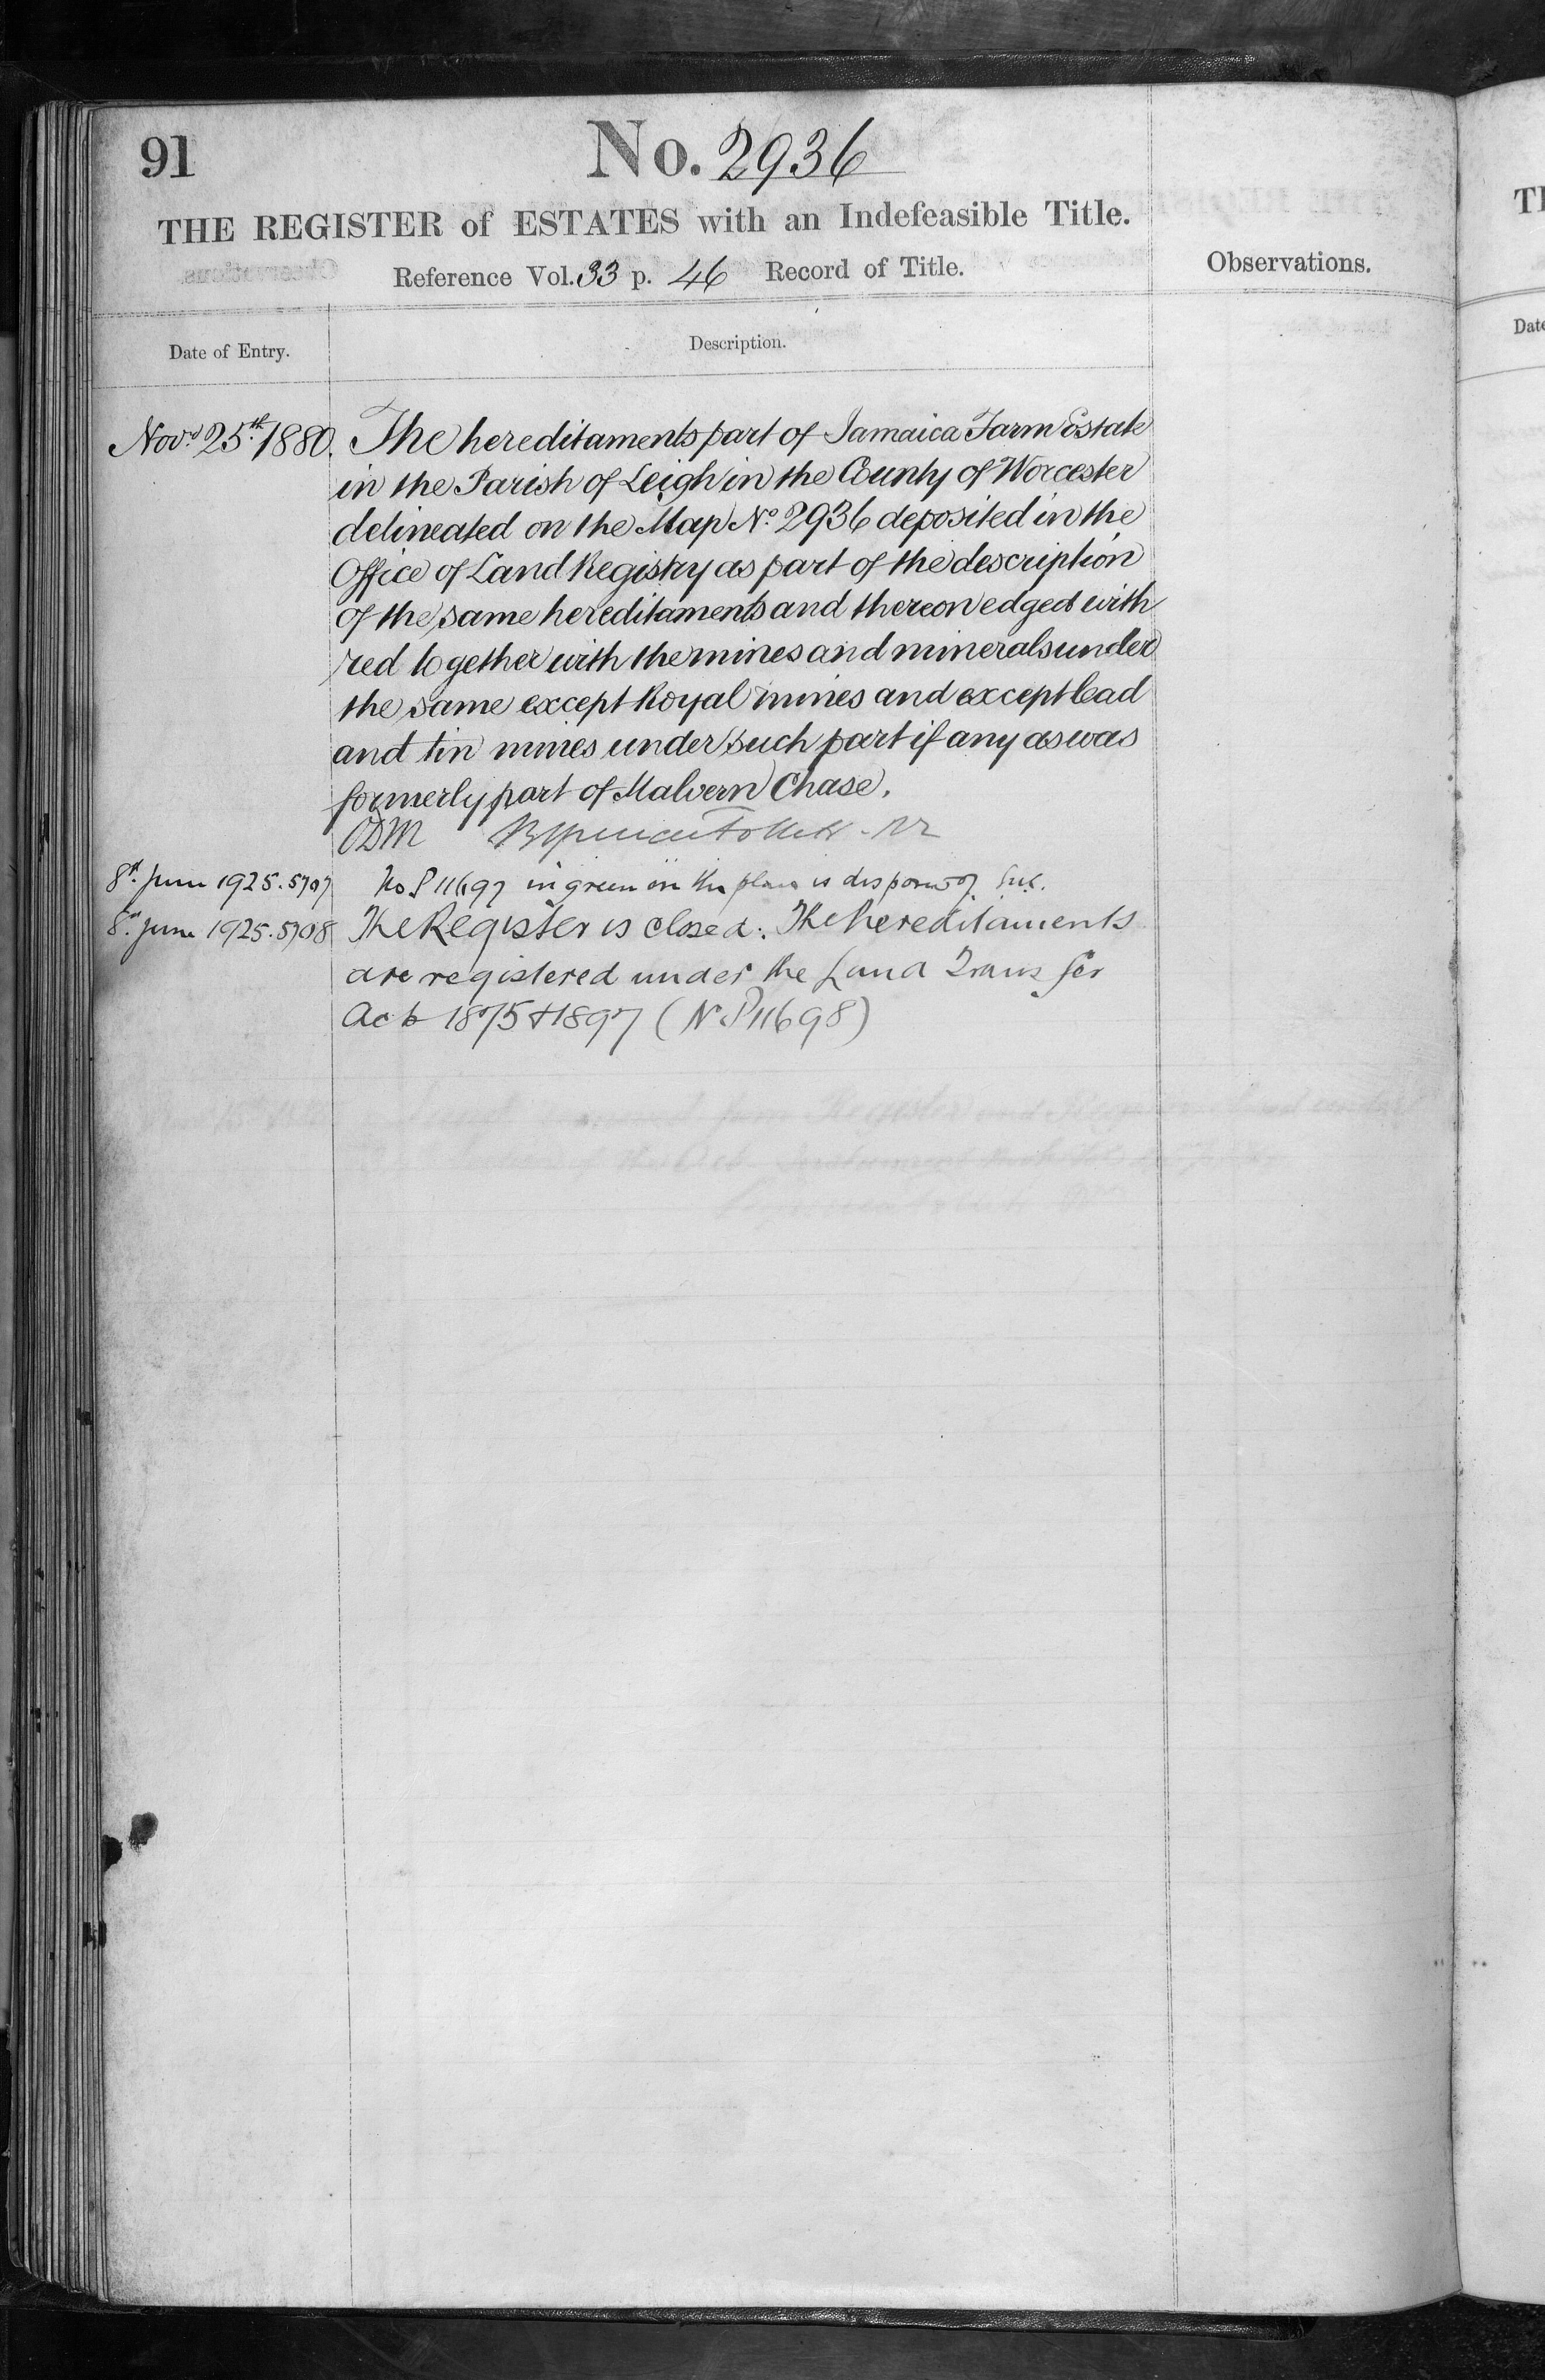 91
No. 2936
THE REGISTER of ESTATES with an Indefeasible Title.
Reference Vol. 33 p. 46 Record of Title.
Observations.
Date of Entry.
Description.
Novr 25th 1880. The hereditaments part of Jamaica Farm Estate
in the Parish of Leigh in the County of Worcester
delineated on the Map No. 2936 deposited in the
Office of Land Registry as part of the description
of the same hereditaments and thereon edged with
red together with the mines and minerals under
the same except Royal mines and except lead
and tin mines under such part if any as was
formerly part of Malvern Chase.
ODM
8th June 1925. 5707 No P11697 in green on the plan is disposed of
8th June 1925. 5708 The Register is closed. The hereditaments
are registered under the Land Transfer
Acts 1875 & 1897 (No P11698)